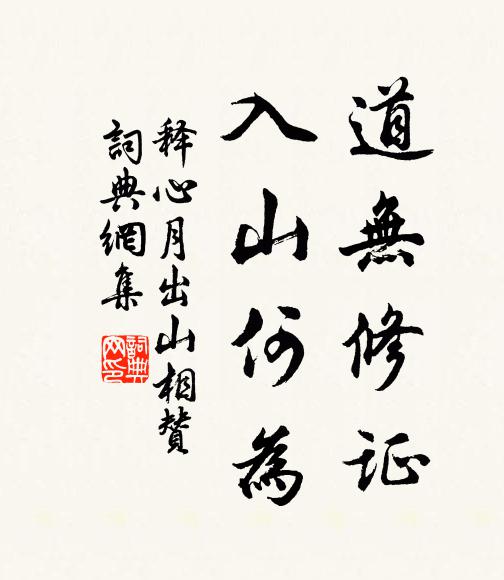 道無修证
入山何為
释心月出山相贊
詞典網集
詞典網印